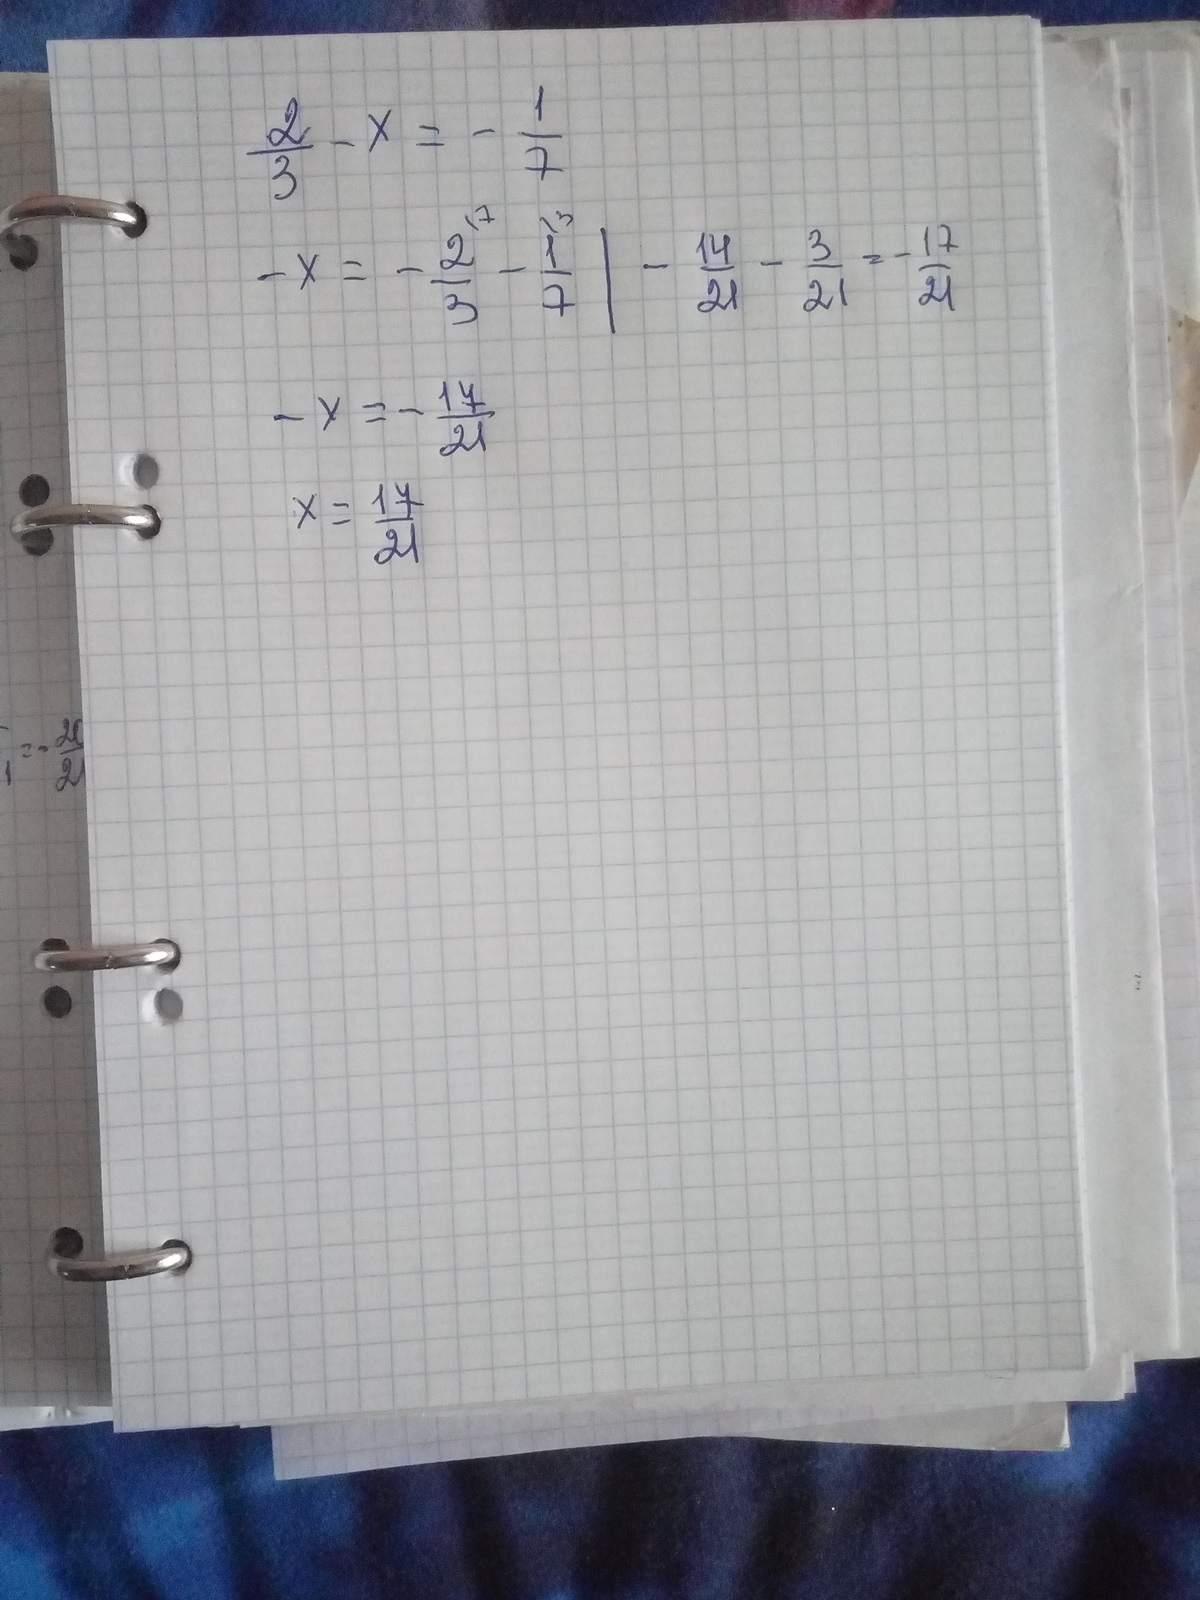 2/3 - x = - 1/7
-x = - 2/3 \7 - 1/7 \3 | - 14/21 - 3/21 = - 17/21
-x = - 17/21
x = 17/21
= - 20/21